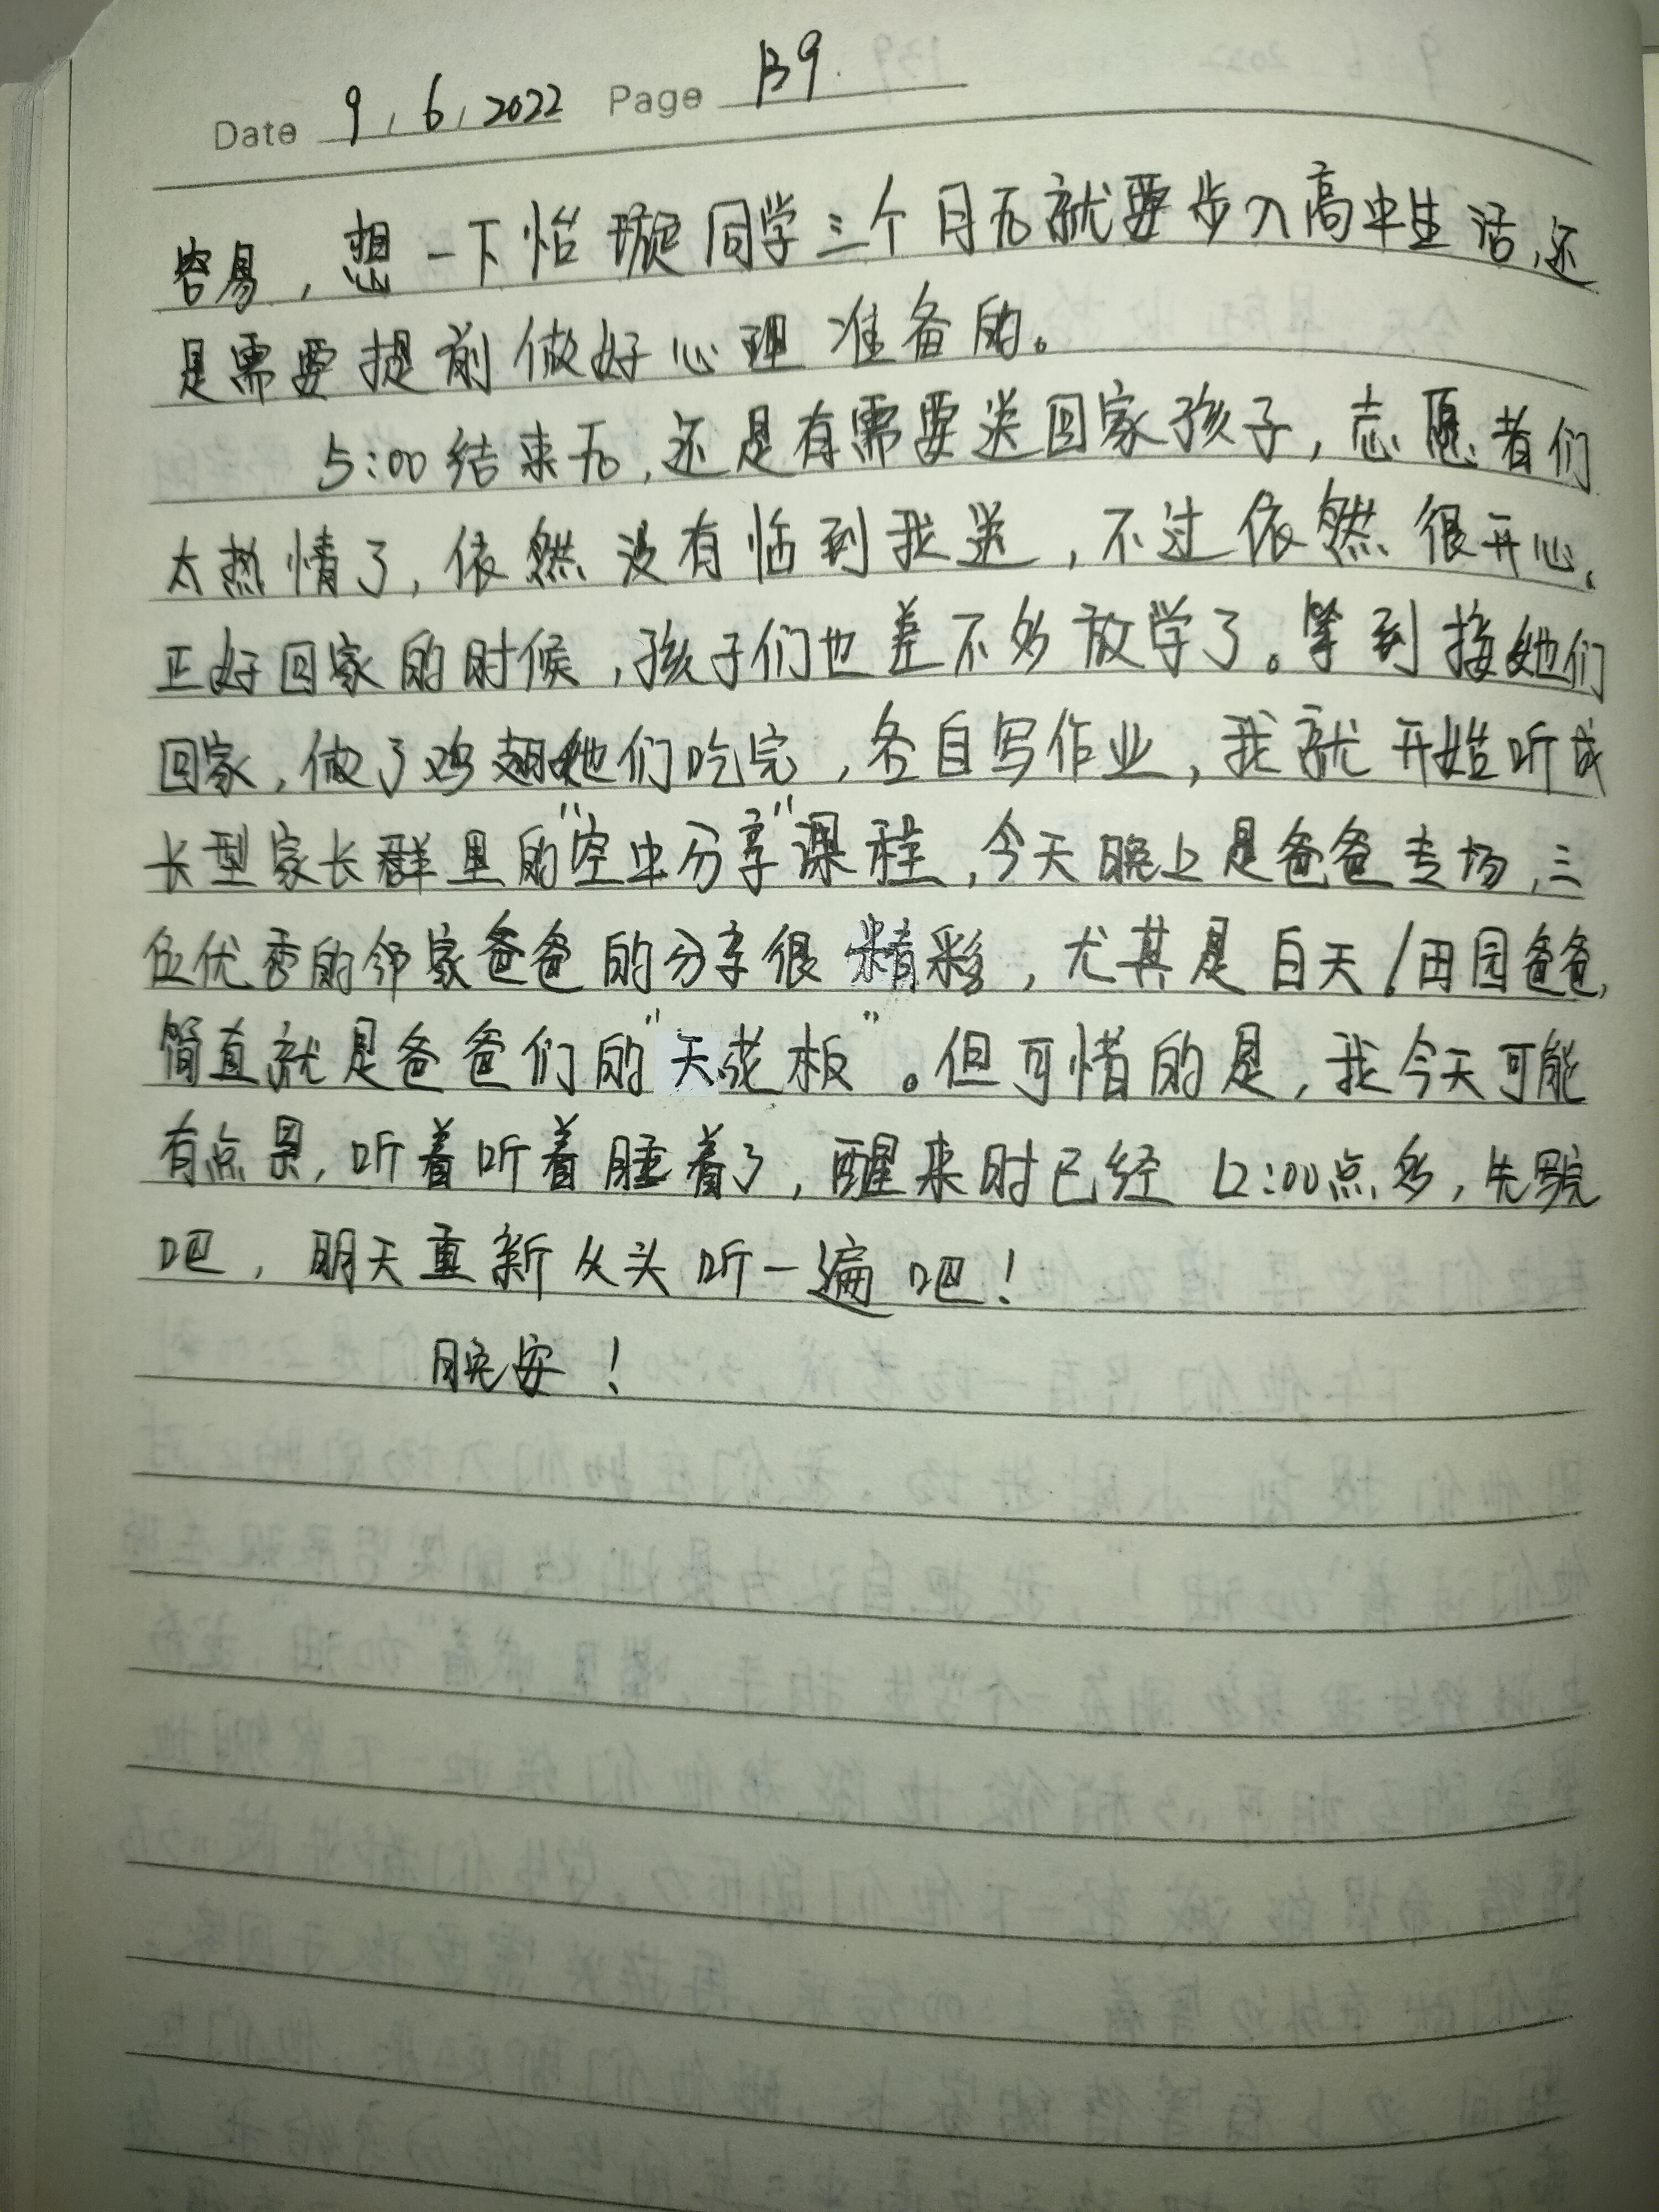 Date 9, 6, 2022 Page 139.
容易，想一下怡璇同学三个月后就要步入高中生活，还
是需要提前做好心理准备的。
5:00结束后，还是有需要送回家孩子，志愿者们
太热情了，依然没有临到我送，不过依然很开心。
正好回家的时候，孩子们也差不多放学了。等到接她们
回家，做了鸡翅她们吃完，各自写作业，我就开始听成
长型家长群里的“空中分享”课程，今天晚上是爸爸专场，三
位优秀的邻家爸爸的分享很精彩，尤其是白天/田园爸爸，
简直就是爸爸们的“天花板”。但可惜的是，我今天可能
有点累，听着听着睡着了，醒来时已经12:00点多，先
吧，明天重新从头听一遍吧！
晚安！